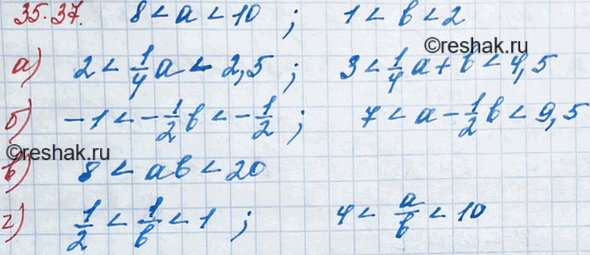 35.37. 8 < a < 10 ; 1 < b < 2
©reshak.ru
а) 2 < 1/4 a < 2,5 ; 3 < 1/4 a + b < 4,5
б) -1 < -1/2 b < -1/2 ; 7 < a - 1/2 b < 9,5
©reshak.ru
в) 8 < ab < 20
г) 1/2 < 1/b < 1 ; 4 < a/b < 10